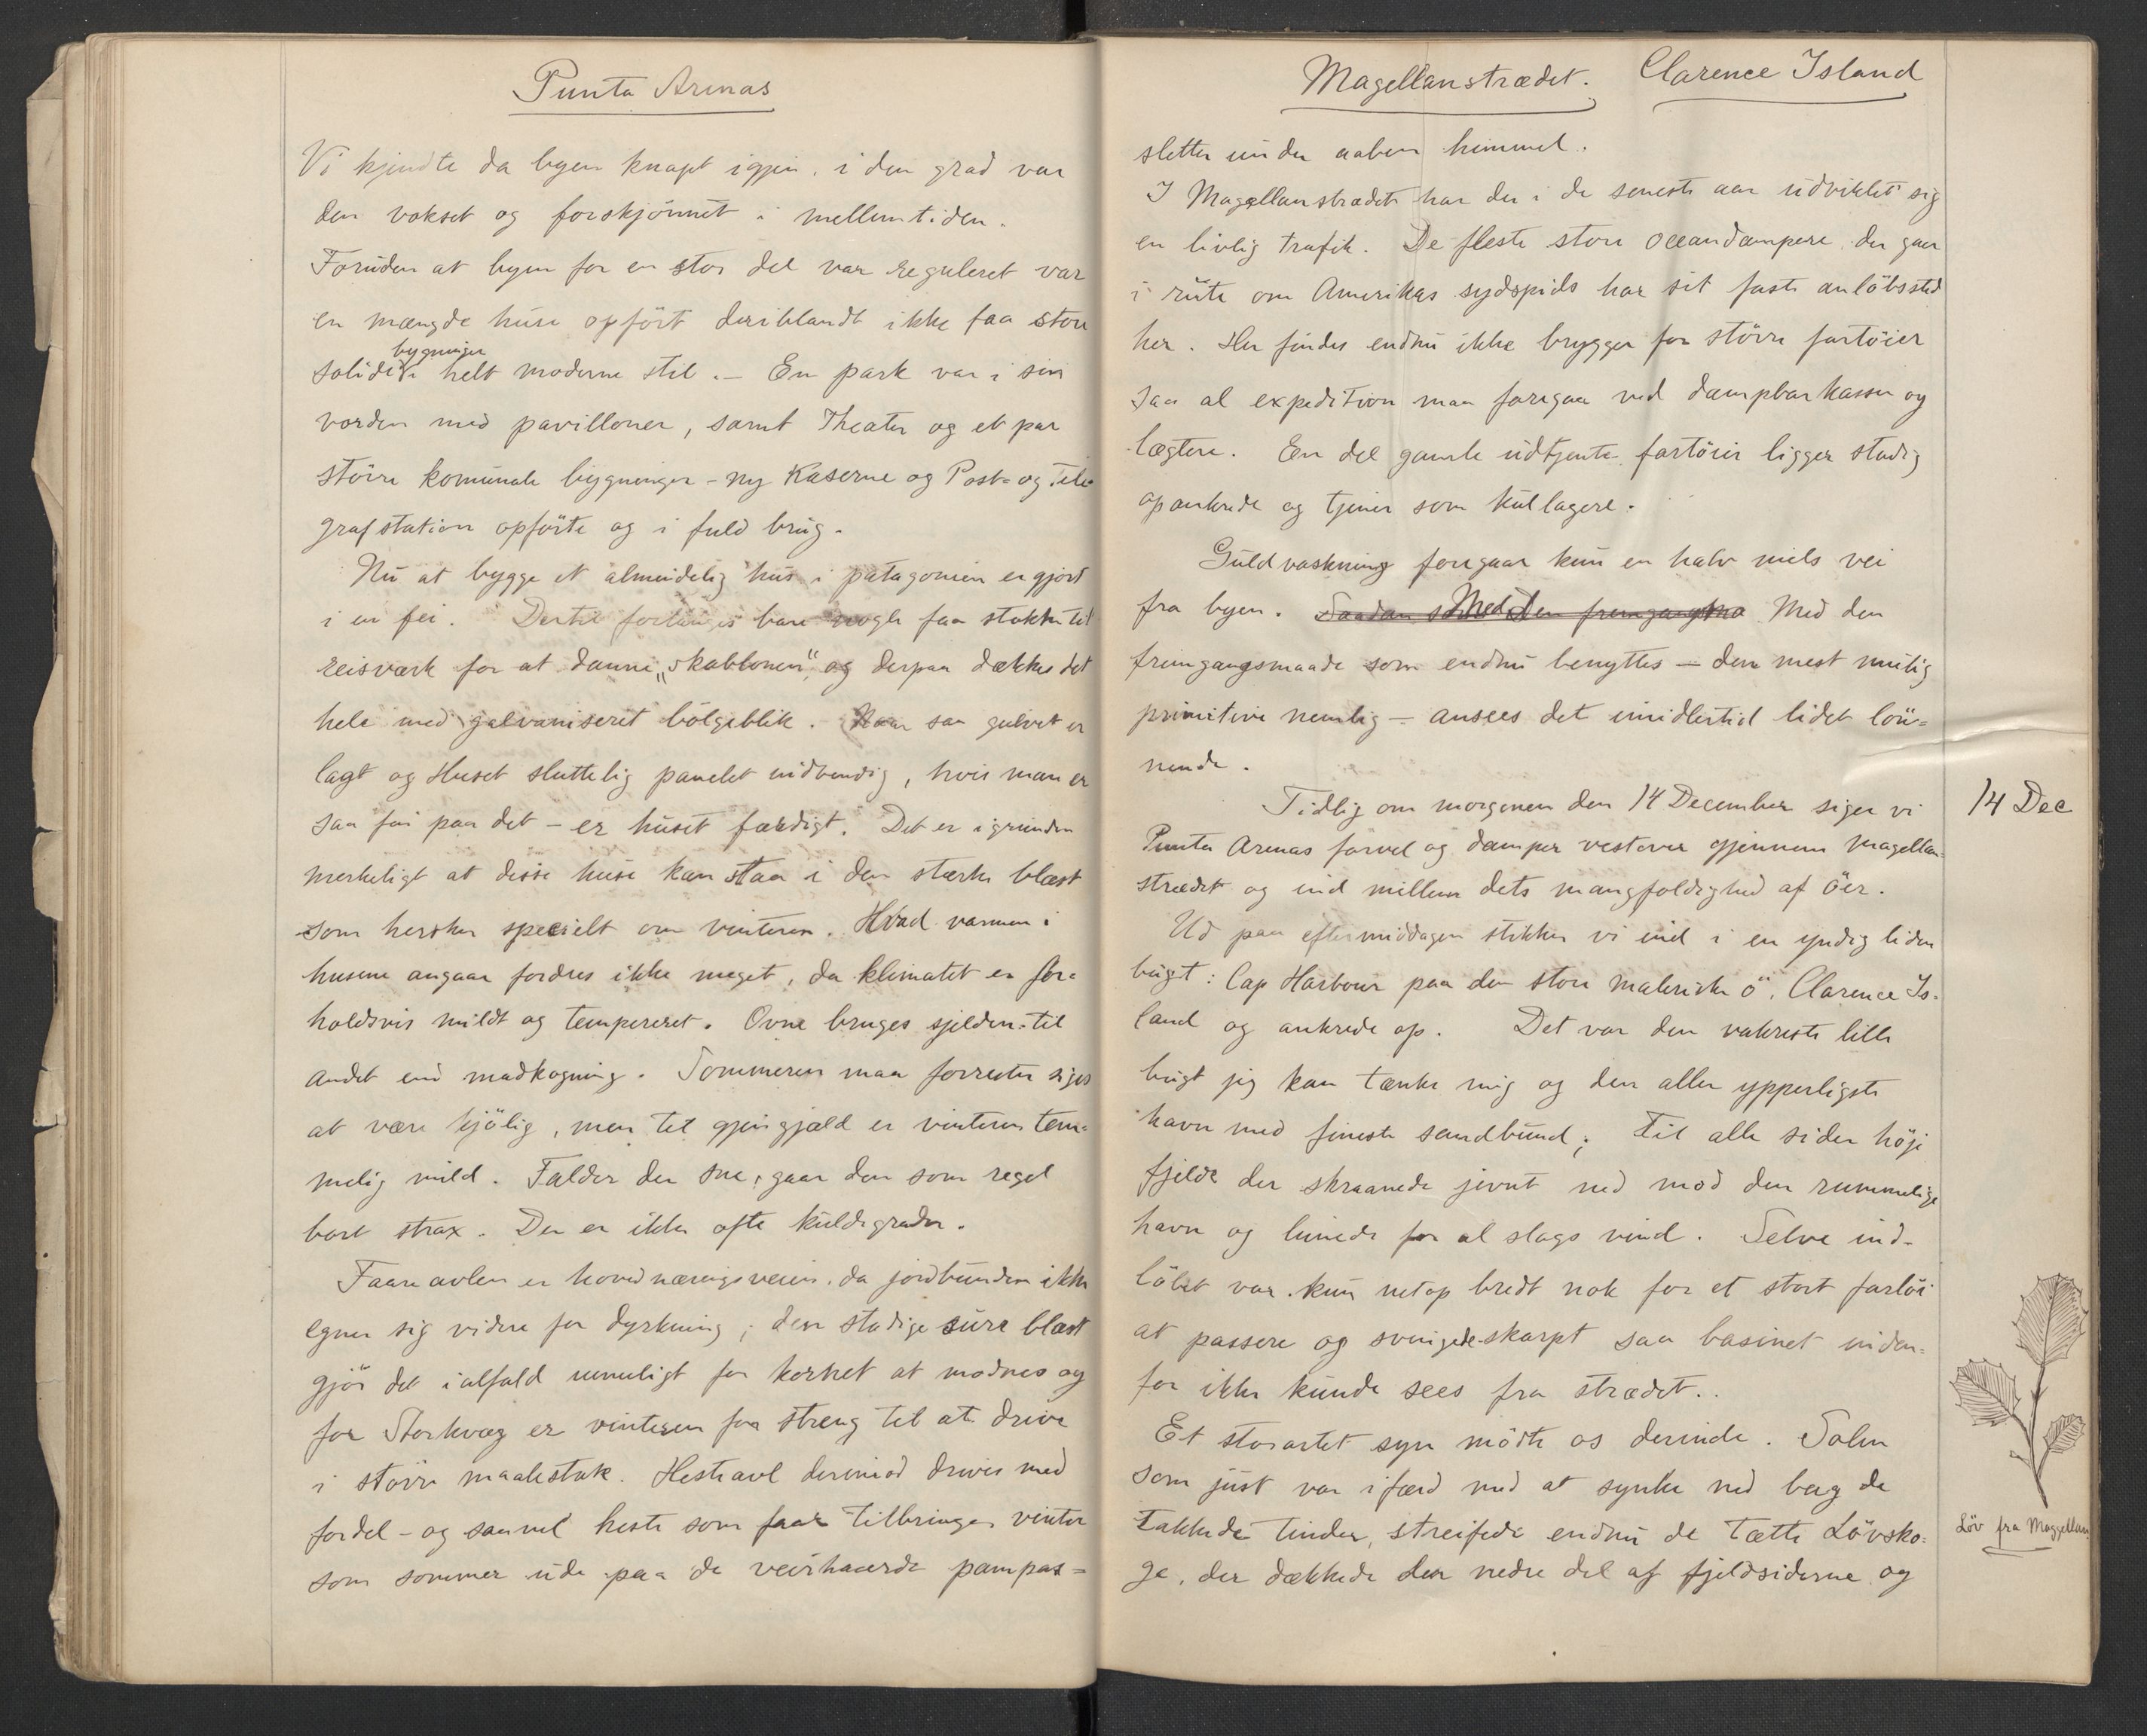 Punta Arenas
Vi kjendte da byen knapt igjen, i den grad var
den vokset og forskjönnet i mellemtiden.
Foruden at byen for en stor del var reguleret var
en mængde huse opfört deriblandt ikke faa store
bygninger
solide i helt moderne stil. – En park var i sin
vorden med pavilloner, samt Theater og et par
större komunale bygninger – ny Kaserne og Post= og Tele=
grafstation opförte og i fuld brug.
Nu at bygge et almindelig hus i patagonien er gjort
i en fei. Dertil forlanges bare nogle faa stokke til
reisværk for at danne „skablonen" og derpaa dækkes det
hele med galvaniseret bölgeblik. Naar saa gulvet er
lagt og Huset sluttelig panelet indvendig, hvis man er
saa fin paa det – er huset færdigt. Det er igrunden
merkeligt at disse huse kan staa i den stærke blæst
som hersker specielt om vinteren. Hvad varmen i
husene angaar fordres ikke meget, da klimatet er for=
holdsvis mildt og tempereret. Ovne bruges sjelden til
andet end madkogning. Sommeren maa forresten siges
at være kjölig, men til gjengjæld er vinteren tem=
melig mild. Falder der sne, gaar den som regel
bort strax. Der er ikke ofte kuldegrader.
Faareavlen er hovednæringsveien, da jordbunden ikke
egner sig videre for dyrkning; den stadige sure blæst
gjör det ialfald umuligt for kornet at modnes og
for Storkvæg er vinteren for streng til at drive
i större maalestok. Hesteavl derimod drives med
fordel – og saavel heste som faar tilbringer vinter
som sommer ude paa de veirhaarde pampas=
Magellanstrædet. Clarence Island
sletter under aaben himmel.
I Magellanstrædet har der i de seneste aar udviklet sig
en livlig trafik. De fleste store oceandampere der gaar
i rute om Amerikas sydspids har sit faste anlöbssted
her. Her findes endnu ikke brygger for större fartöier
saa al expedition maa foregaa ved dampbarkasser og
lægtere. En del gamle udtjente fartöier ligger stadig
opankrede og tjener som kullagere.
Guldvaskning foregaar kun en halv miels vei
fra byen. Saadan som Med den fremgangsma Med den
fremgangsmaade som endnu benyttes – den mest mulig
primitive nemlig – ansees det imidlertid lidet lön=
nende.
Tidlig om morgenen den 14 December siger vi
14 Dec
Punta Arenas farvel og damper vestover gjennem Magellan=
strædet og ind mellem dets mangfoldighed af öer.
Ud paa eftermiddagen stikker vi ind i en yndig liden
bugt: Cap Harbour paa den store maleriske ö, Clarence Is=
land og ankrede op. Det var den vakreste lille
bugt jeg kan tænke mig og den aller ypperligste
havn med fineste sandbund; til alle sider höje
fjelde der skraanede jevnt ned mod den rummelige
havn og lunede for al slags vind. Selve ind=
löbet var kun netop bredt nok for et stort fartöi
at passere og svingede skarpt saa basinet inden=
for ikke kunde sees fra strædet.
Et storartet syn mödte os derinde. Solen
som just var ifærd med at synke ned bag de
takkede tinder, streifede endnu de tætte Lövsko=
ge, der dækkede den nedre del af fjeldsiderne og
Löv fra Magellan